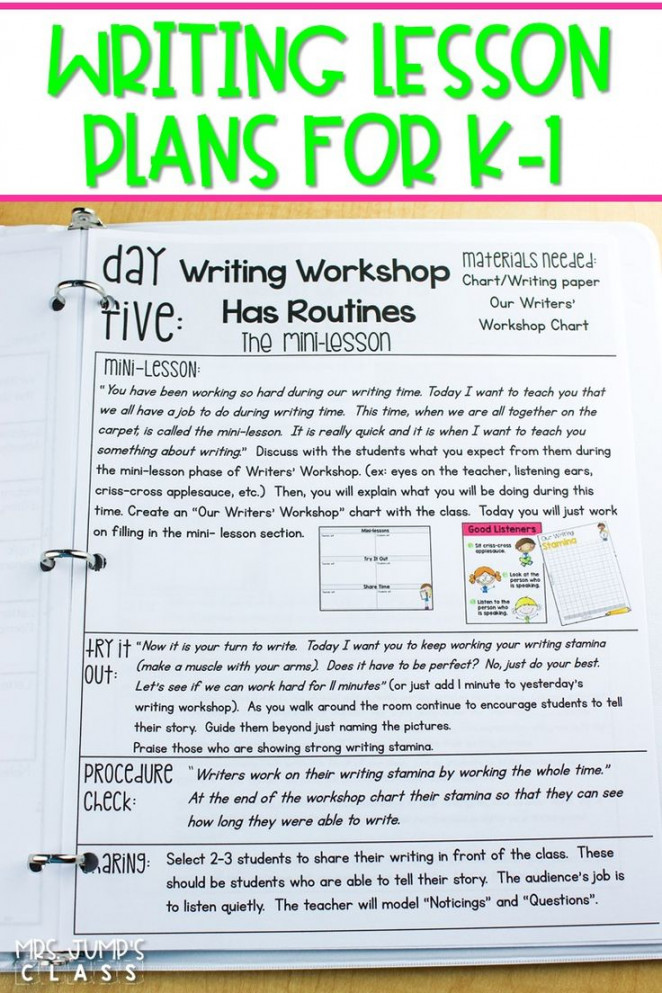 WRITING LESSON
PLANS FOR K-1
day
five:
Writing Workshop
Has Routines
The mini-Lesson
materials needed:
Chart/Writing paper
Our Writers'
Workshop Chart
mini-Lesson:
"You have been working so hard during our writing time. Today I want to teach you that
we all have a job to do during writing time. This time, when we are all together on the
carpet, is called the mini-lesson. It is really quick and it is when I want to teach you
something about writing." Discuss with the students what you expect from them during
the mini-lesson phase of Writers' Workshop. (ex: eyes on the teacher, listening ears,
criss-cross applesauce, etc.) Then, you will explain what you will be doing during this
time. Create an "Our Writers' Workshop" chart with the class. Today you will just work
on filling in the mini- lesson section.
Mini-lessons
Try It Out
Share Time
Good Listeners
Sit criss-cross
applesauce.
Look at the
person who
is speaking.
Listen to the
person who
is speaking.
Our Writing
Stamina
tRY it
OUt:
"Now it is your turn to write. Today I want you to keep working your writing stamina
(make a muscle with your arms). Does it have to be perfect? No, just do your best.
Let's see if we can work hard for 11 minutes" (or just add 1 minute to yesterday's
writing workshop). As you walk around the room continue to encourage students to tell
their story. Guide them beyond just naming the pictures.
Praise those who are showing strong writing stamina.
PROCEDURE
CHeck:
"Writers work on their writing stamina by working the whole time."
At the end of the workshop chart their stamina so that they can see
how long they were able to write.
HARING:
Select 2-3 students to share their writing in front of the class. These
should be students who are able to tell their story. The audience's job is
to listen quietly. The teacher will model "Noticings" and "Questions".
MRS. JUMP'S
CLASS